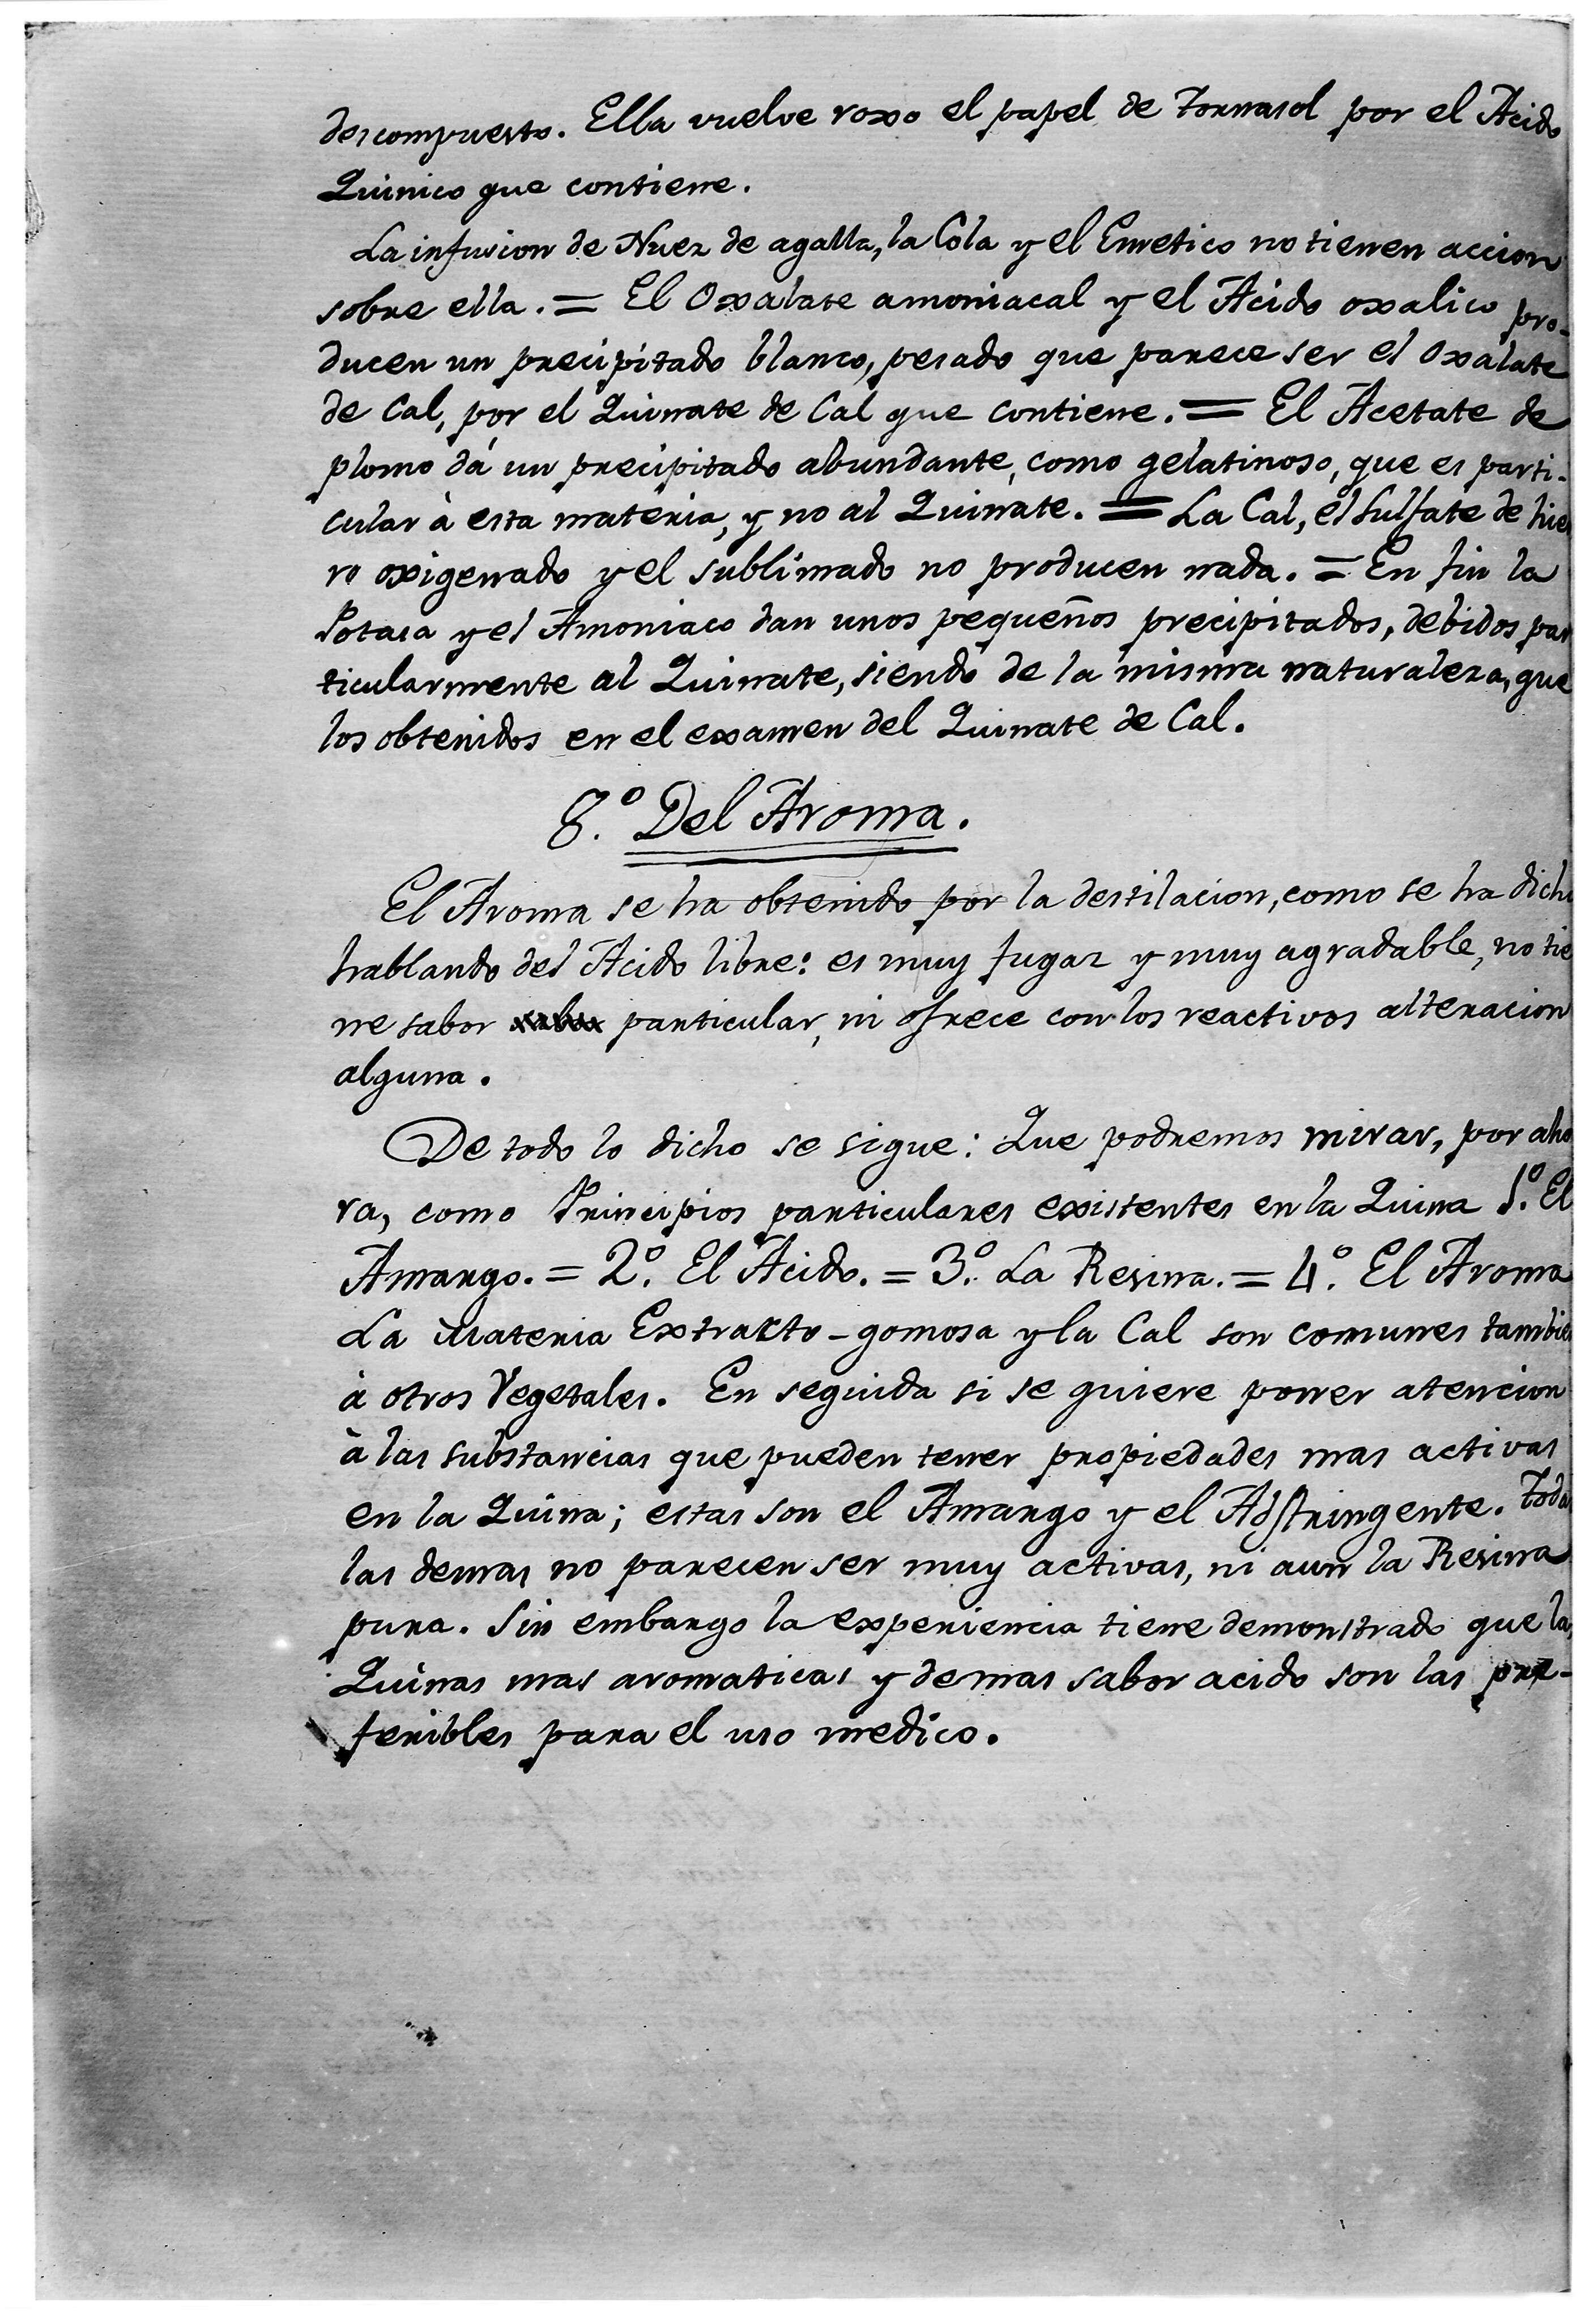 descompuesto. Ella vuelve roxo el papel de Tornasol por el Acido
Quinico que contiene.
La infusion de Nuez de agalla, la Cola y el Emetico no tienen accion
sobre ella. = El Oxalate amoniacal y el Acido oxalico pro-
ducen un precipitado blanco, pesado que parece ser el Oxalate
de Cal, por el Quinate de Cal que contiene. = El Acetate de
plomo dá un precipitado abundante, como gelatinoso, que es parti-
cular à esta materia, y no al Quinate. = La Cal, el Sulfate de hier
ro oxigenado y el sublimado no producen nada. = En fin la
Potasa y el Amoniaco dan unos pequeños precipitados, debidos par
ticularmente al Quinate, siendo de la misma naturaleza, que
los obtenidos en el examen del Quinate de Cal.
8.º Del Aroma.
El Aroma se ha obtenido por la destilacion, como se ha dicho
hablando del Acido libre: es muy fugaz y muy agradable, no tie
ne sabor particular, ni ofrece con los reactivos alteracion
alguna.
De todo lo dicho se sigue: Que podremos mirar, por aho
ra, como Principios particulares existentes en la Quina 1.º El
Amargo. = 2.º El Acido. = 3.º La Resina. = 4.º El Aroma
La Materia Extracto-gomosa y la Cal son comunes tambien
à otros Vegetales. En seguida si se quiere poner atencion
à las substancias que pueden tener propiedades mas activas
en la Quina; estas son el Amargo y el Adstringente. Todas
las demas no parecen ser muy activas, ni aun la Resina
pura. Sin embargo la experiencia tiene demonstrado que las
Quinas mas aromaticas y de mas sabor acido son las pre-
feribles para el uso medico.